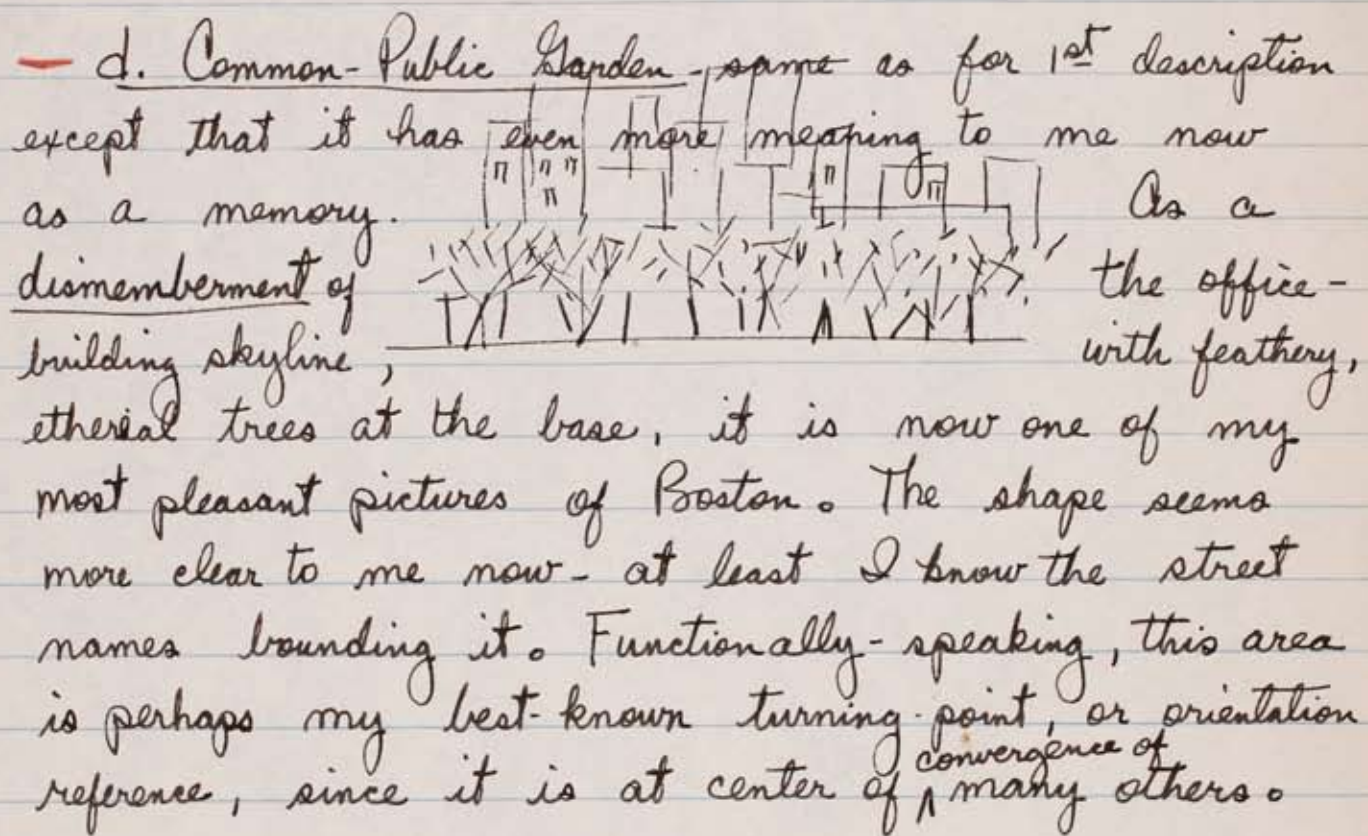 — d. Common-Public Garden - same as for 1st description
except that it has even more meaning to me now
as a memory. As a
dismemberment of the office-
building skyline, with feathery,
etherial trees at the base, it is now one of my
most pleasant pictures of Boston. The shape seems
more clear to me now - at least I know the street
names bounding it. Functionally-speaking, this area
is perhaps my best-known turning-point, or orientation
reference, since it is at center of ^convergence of many others.